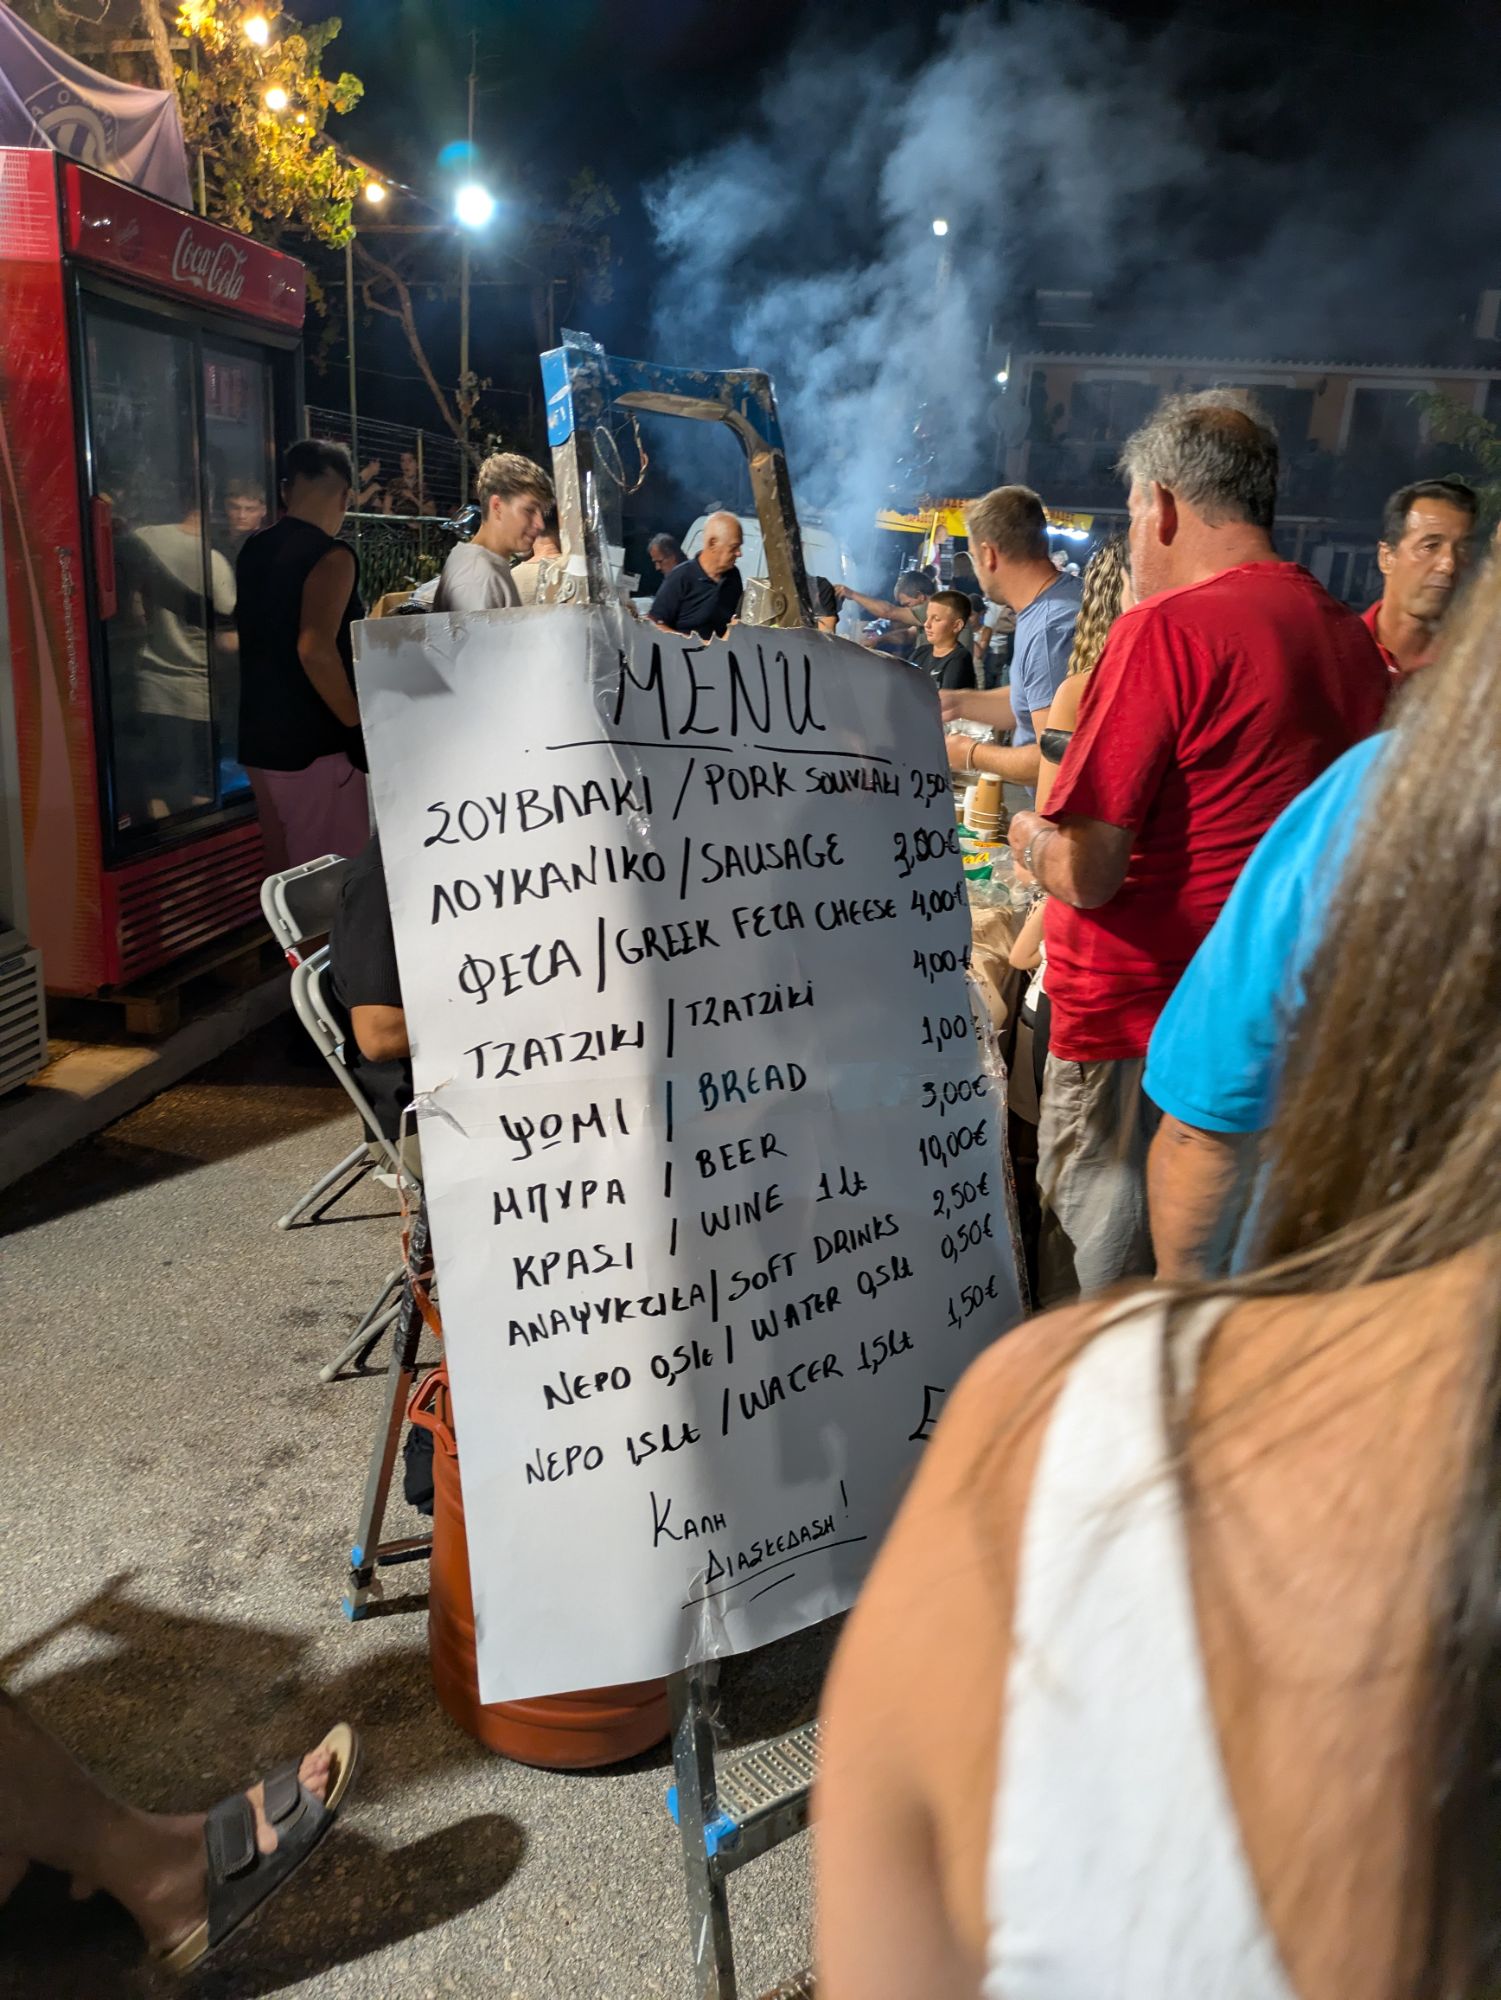 Coca-Cola
MENU
ΣΟΥΒΛΑΚΙ / PORK SOUVLAKI 2,50
ΛΟΥΚΑΝΙΚΟ / SAUSAGE 3,00€
ΦΕΤΑ / GREEK FETA CHEESE 4,00€
ΤΖΑΤΖΙΚΙ / TZATZIKI 4,00€
ΨΩΜΙ / BREAD 1,00€
ΜΠΥΡΑ / BEER 3,00€
ΚΡΑΣΙ / WINE 1 lt 10,00€
ΑΝΑΨΥΚΤΙΚΑ / SOFT DRINKS 2,50€
ΝΕΡΟ 0,5lt / WATER 0,5lt 0,50€
ΝΕΡΟ 1,5lt / WATER 1,5lt 1,50€
ΚΑΛΗ
ΔΙΑΣΚΕΔΑΣΗ!